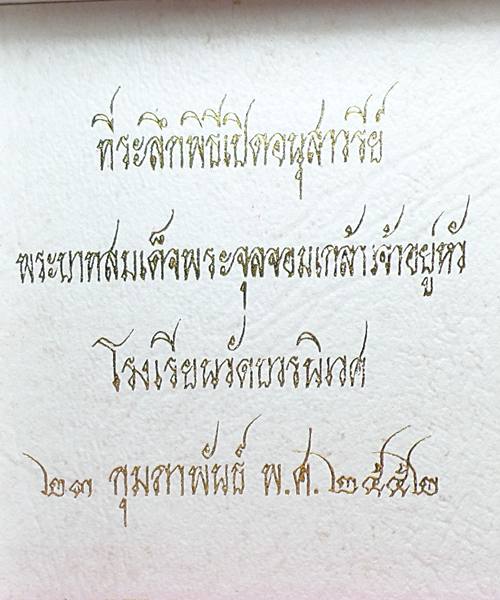 ที่ระลึกพิธีเปิดอนุสาวรีย์
พระบาทสมเด็จพระจุลจอมเกล้าเจ้าอยู่หัว
โรงเรียนวัดบวรนิเวศ
๒๓ กุมภาพันธ์ พ.ศ. ๒๕๕๒